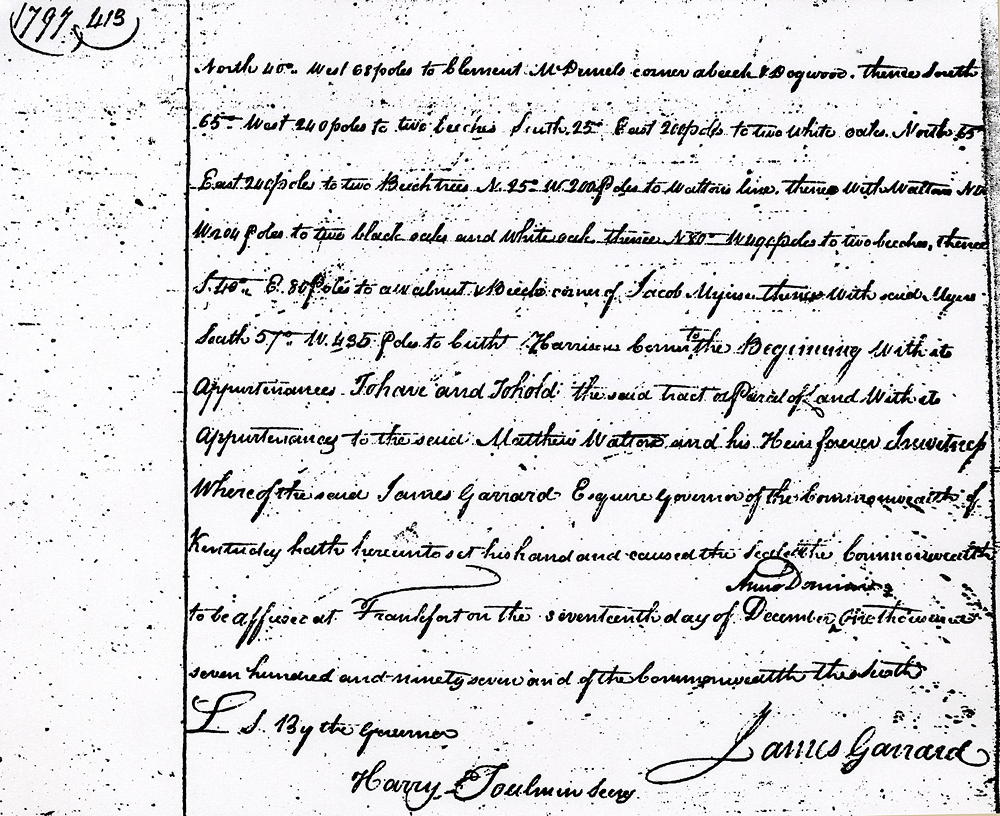 1797, 413
North 40° West 68 poles to Clement McDaniels corner a beech & Dogwood. thence South
65° West 240 poles to two beeches South 25° East 200 poles to two white oaks. North 65°
East 240 poles to two Beech trees N. 25° W 200 Poles to Waltons line. thence With Walton
W 204 Poles to two black oaks and White oak thence N 80° W 490 poles to two beeches, thence
S. 40° E. 80 Poles to a walnut & Beech corner of Jacob Myers thence With said Myers
South 57° W. 435 Poles to Cutht Harrisons Corner to the Beginning With its
Appurtenances To have and To hold the said tract or Parcel of Land With its
Appurtenances to the said Matthew Walton and his Heirs forever In witness
Whereof the said James Garrard Esquire Governor of the Commonwealth of
Kentucky hath hereunto set his hand and caused the Seal of the Commonwealth
Anno Domini
to be affixed at Frankfort on the seventeenth day of December, One thousand
seven hundred and ninety seven and of the Commonwealth the Sixth
L S. By the Governor
James Garrard
Harry Toulmin Secy.